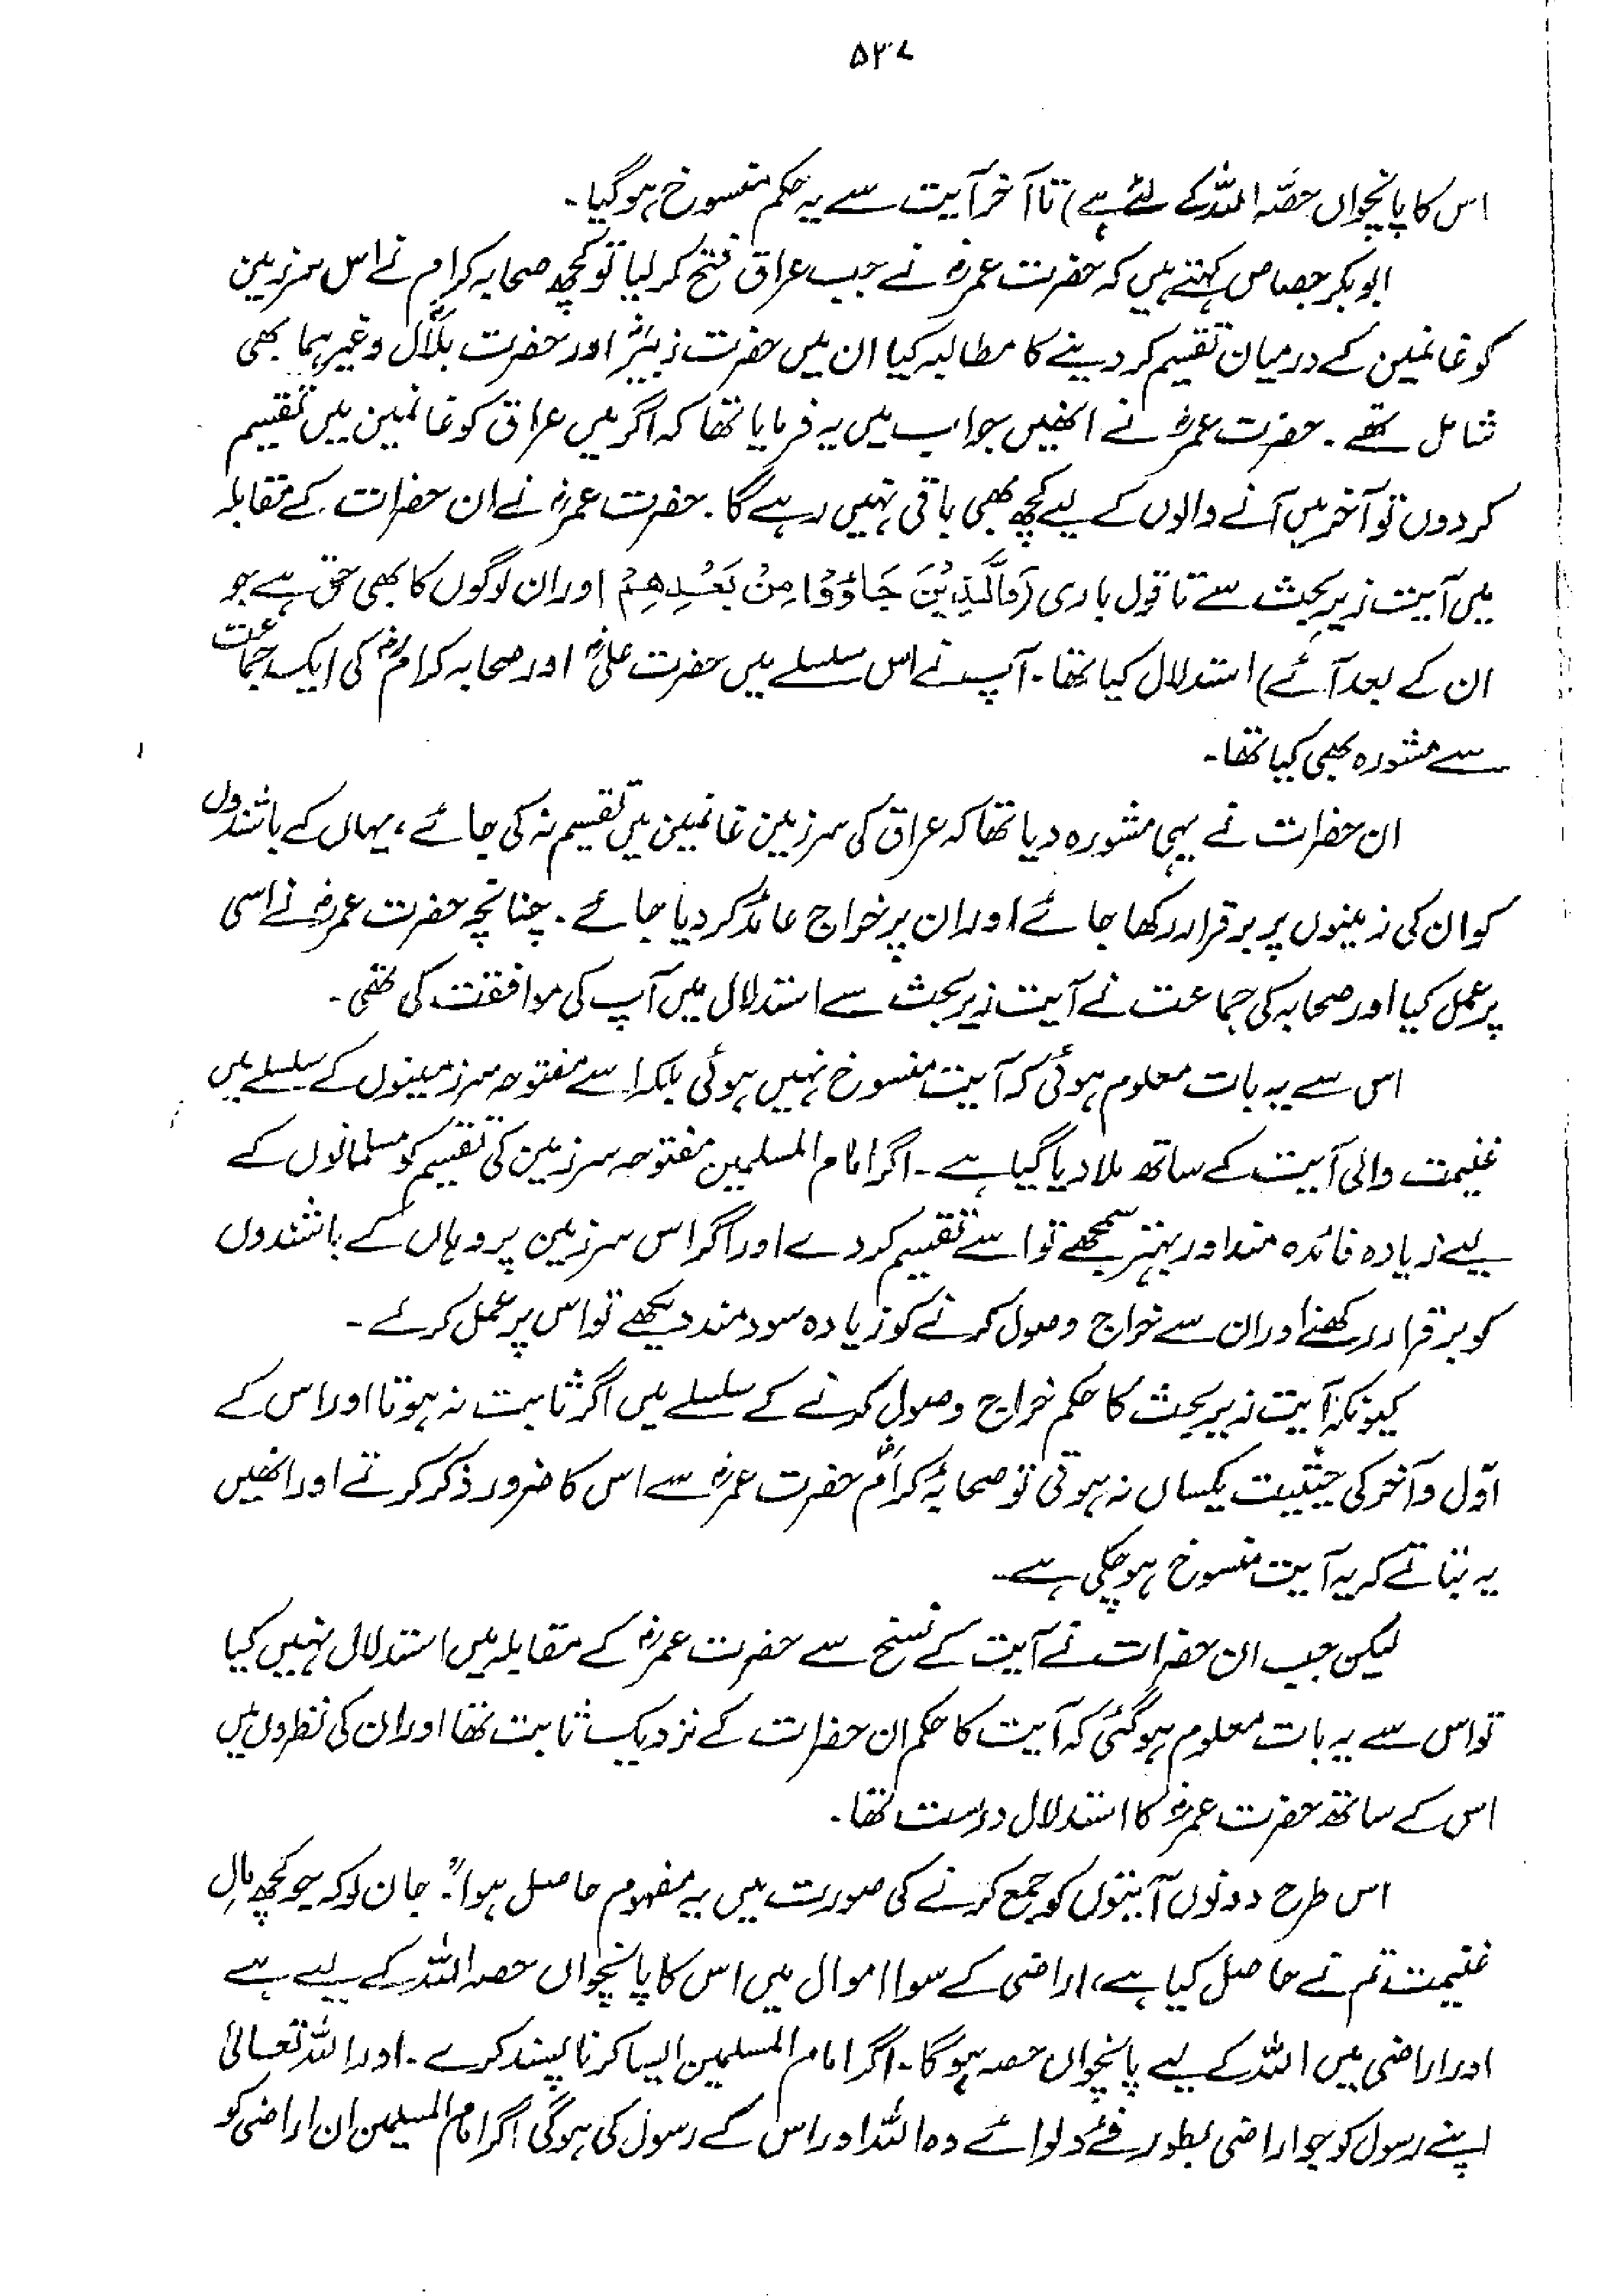 ۵۲۷
اس کا پانچواں حصّہ اللہ کے لئے ہے) تا آخر آیت سے یہ حکم منسوخ ہو گیا۔
ابوبکر جصاص کہتے ہیں کہ حضرت عمرؓ نے جب عراق فتح کر لیا تو کچھ صحابہ کرام نے اس سرزمین
کو غانمین کے درمیان تقسیم کر دینے کا مطالبہ کیا ان میں حضرت زبیرؓ اور حضرت بلالؓ وغیرہما بھی
شامل تھے۔ حضرت عمرؓ نے انھیں جواب میں یہ فرمایا تھا کہ اگر میں عراق کو غانمین میں تقسیم
کر دوں تو آخر میں آنے والوں کے لیے کچھ بھی باقی نہیں رہے گا۔ حضرت عمرؓ نے ان حضرات کے مقابلہ
میں آیت زیر بحث سے تا قول باری (وَالَّذِيْنَ جَاؤُوْا مِنْ بَعْدِهِمْ اور ان لوگوں کا بھی حق ہے جو
ان کے بعد آئے) استدلال کیا تھا۔ آپ نے اس سلسلے میں حضرت علیؓ اور صحابہ کرامؓ کی ایک جماعت
سے مشورہ بھی کیا تھا۔
ان حضرات نے یہی مشورہ دیا تھا کہ عراق کی سرزمین غانمین میں تقسیم نہ کی جائے، یہاں کے باشندوں
کو ان کی زمینوں پر برقرار رکھا جائے اور ان پر خراج عائد کر دیا جائے۔ چنانچہ حضرت عمرؓ نے اسی
پر عمل کیا اور صحابہ کی جماعت نے آیت زیر بحث سے استدلال میں آپ کی موافقت کی تھی۔
اس سے یہ بات معلوم ہوئی کہ آیت منسوخ نہیں ہوئی بلکہ اسے مفتوحہ سرزمینوں کے سلسلے میں
غنیمت والی آیت کے ساتھ ملا دیا گیا ہے۔ اگر امام المسلمین مفتوحہ سرزمین کی تقسیم کو مسلمانوں کے
لیے زیادہ فائدہ مند اور بہتر سمجھے تو اسے تقسیم کر دے اور اگر اس سرزمین پر وہاں کے باشندوں
کو برقرار رکھنے اور ان سے خراج وصول کرنے کو زیادہ سود مند دیکھے تو اس پر عمل کرے۔
کیونکہ آیت زیر بحث کا حکم خراج وصول کرنے کے سلسلے میں اگر ثابت نہ ہوتا اور اس کے
اوّل و آخر کی حیثیت یکساں نہ ہوتی تو صحابۂ کرامؓ حضرت عمرؓ سے اس کا ضرور ذکر کرتے اور انھیں
یہ بتاتے کہ یہ آیت منسوخ ہو چکی ہے۔
لیکن جب ان حضرات نے آیت کے نسخ سے حضرت عمرؓ کے مقابلہ میں استدلال نہیں کیا
تو اس سے یہ بات معلوم ہو گئی کہ آیت کا حکم ان حضرات کے نزدیک ثابت تھا اور ان کی نظروں میں
اس کے ساتھ حضرت عمرؓ کا استدلال درست تھا۔
اس طرح دونوں آیتوں کو جمع کرنے کی صورت میں یہ مفہوم حاصل ہوا"۔ جان لو کہ جو کچھ مالِ
غنیمت تم نے حاصل کیا ہے، اراضی کے سوا اموال میں اس کا پانچواں حصہ اللہ کے لیے ہے
اور اراضی میں اللہ کے لیے پانچواں حصہ ہوگا۔ اگر امام المسلمین ایسا کرنا پسند کرے۔ اور اللہ تعالیٰ
اپنے رسول کو جو اراضی بطور فئے دلوائے وہ اللہ اور اس کے رسول کی ہوگی اگر امام المسلمین ان اراضی کو